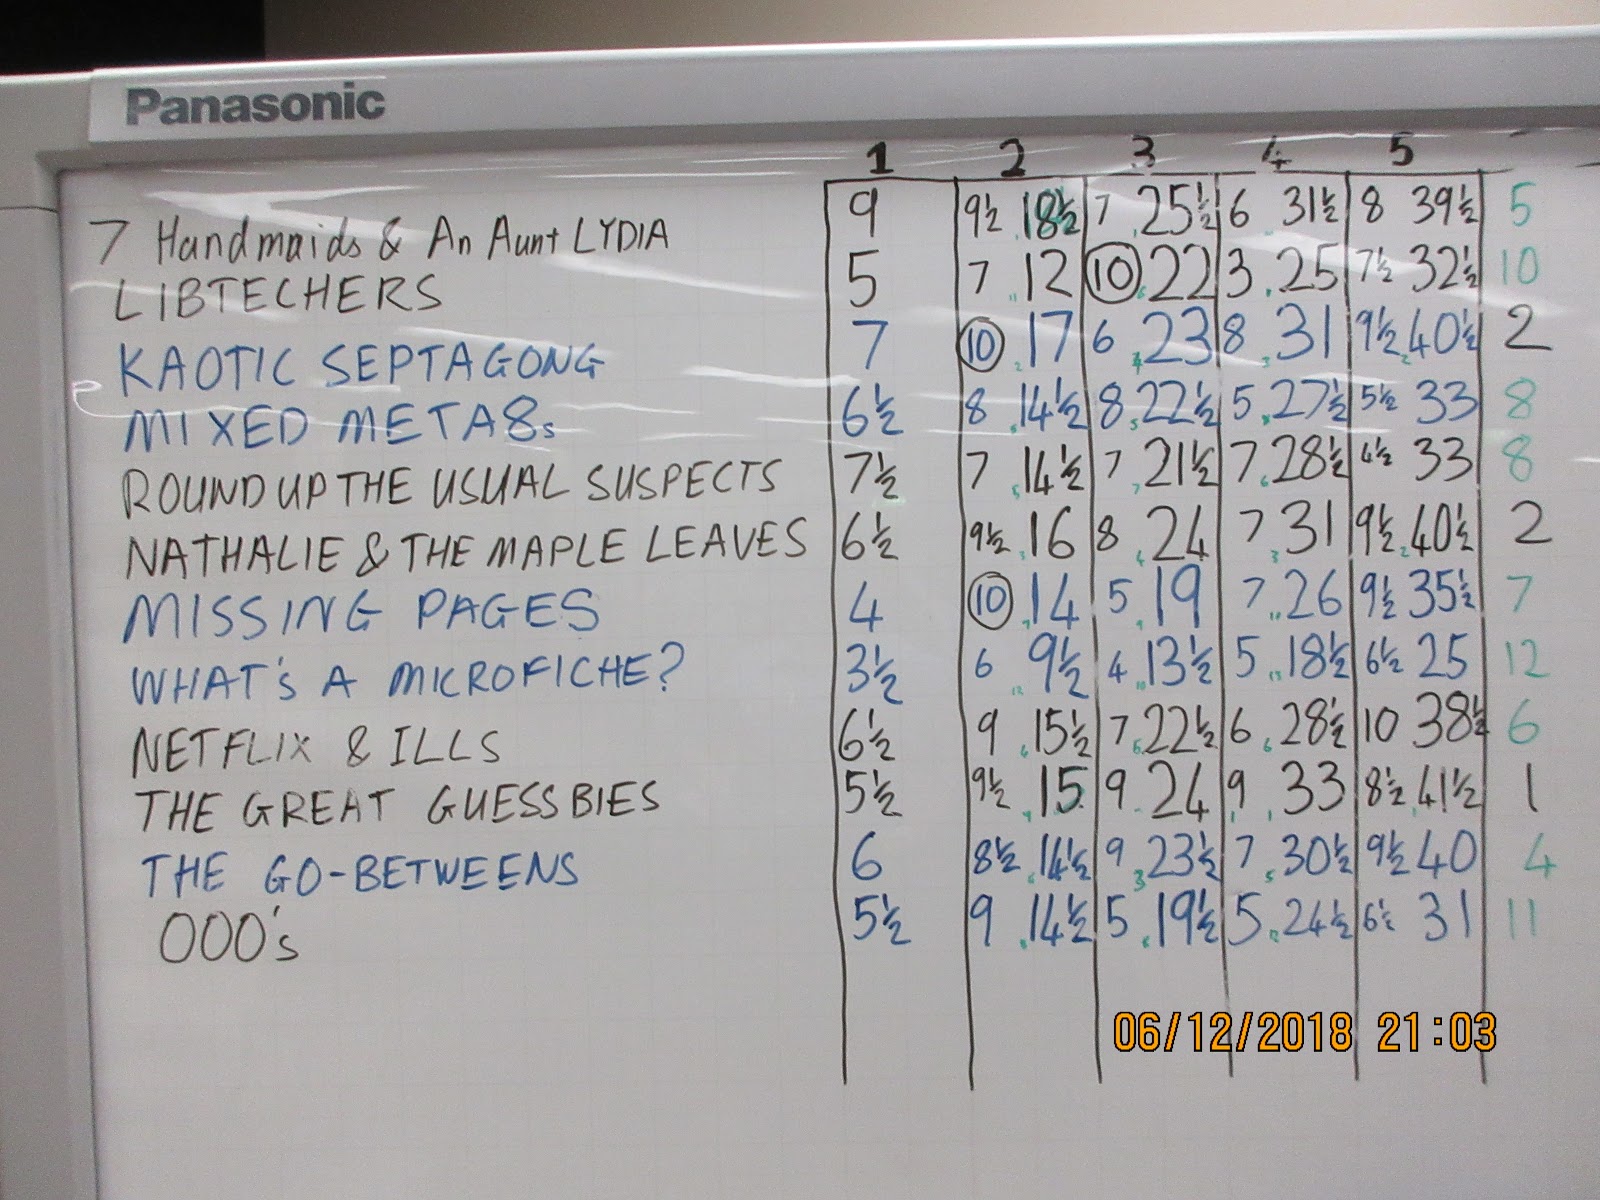 Panasonic
1 2 3 4 5
7 Handmaids & An Aunt LYDIA 9 9½ 18½ 7 25½ 6 31½ 8 39½ 5
LIBTECHERS 5 7 12 10 22 3 25 7½ 32½ 10
KAOTIC SEPTAGONG 7 10 17 6 23 8 31 9½ 40½ 2
MIXED META8s 6½ 8 14½ 8 22½ 5 27½ 5½ 33 8
ROUND UP THE USUAL SUSPECTS 7½ 7 14½ 7 21½ 7 28½ 4½ 33 8
NATHALIE & THE MAPLE LEAVES 6½ 9½ 16 8 24 7 31 9½ 40½ 2
MISSING PAGES 4 10 14 5 19 7 26 9½ 35½ 7
WHAT'S A MICROFICHE? 3½ 6 9½ 4 13½ 5 18½ 6½ 25 12
NETFLIX & ILLS 6½ 9 15½ 7 22½ 6 28½ 10 38½ 6
THE GREAT GUESSBIES 5½ 9½ 15 9 24 9 33 8½ 41½ 1
THE GO-BETWEENS 6 8½ 14½ 9 23½ 7 30½ 9½ 40 4
OOO's 5½ 9 14½ 5 19½ 5 24½ 6½ 31 11
06/12/2018 21:03